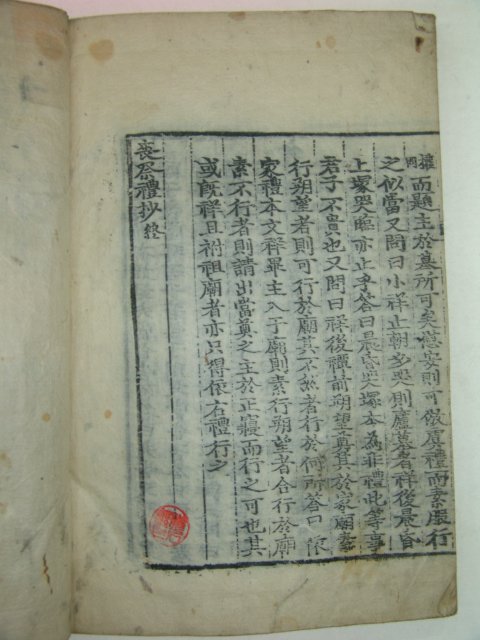 據而題主於墓所可矣慰安則可倣虞禮而素服行
四
之似當又問曰小祥止朝夕哭則廬墓者祥後晨昏
上塚哭臨亦止乎答曰晨昏哭塚本為非禮此等事
君子不貴也又問曰祥後禫前朔望奠其於家廟素
行朔望者則可行於廟其不然者行於何所答曰依
家禮本文祥畢主入于廟則素行朔望者合行於廟
素不行者則請出當奠之主於正寢而行之可也其
或旣祥且祔祖廟者亦只得依右禮行之
喪祭禮抄終